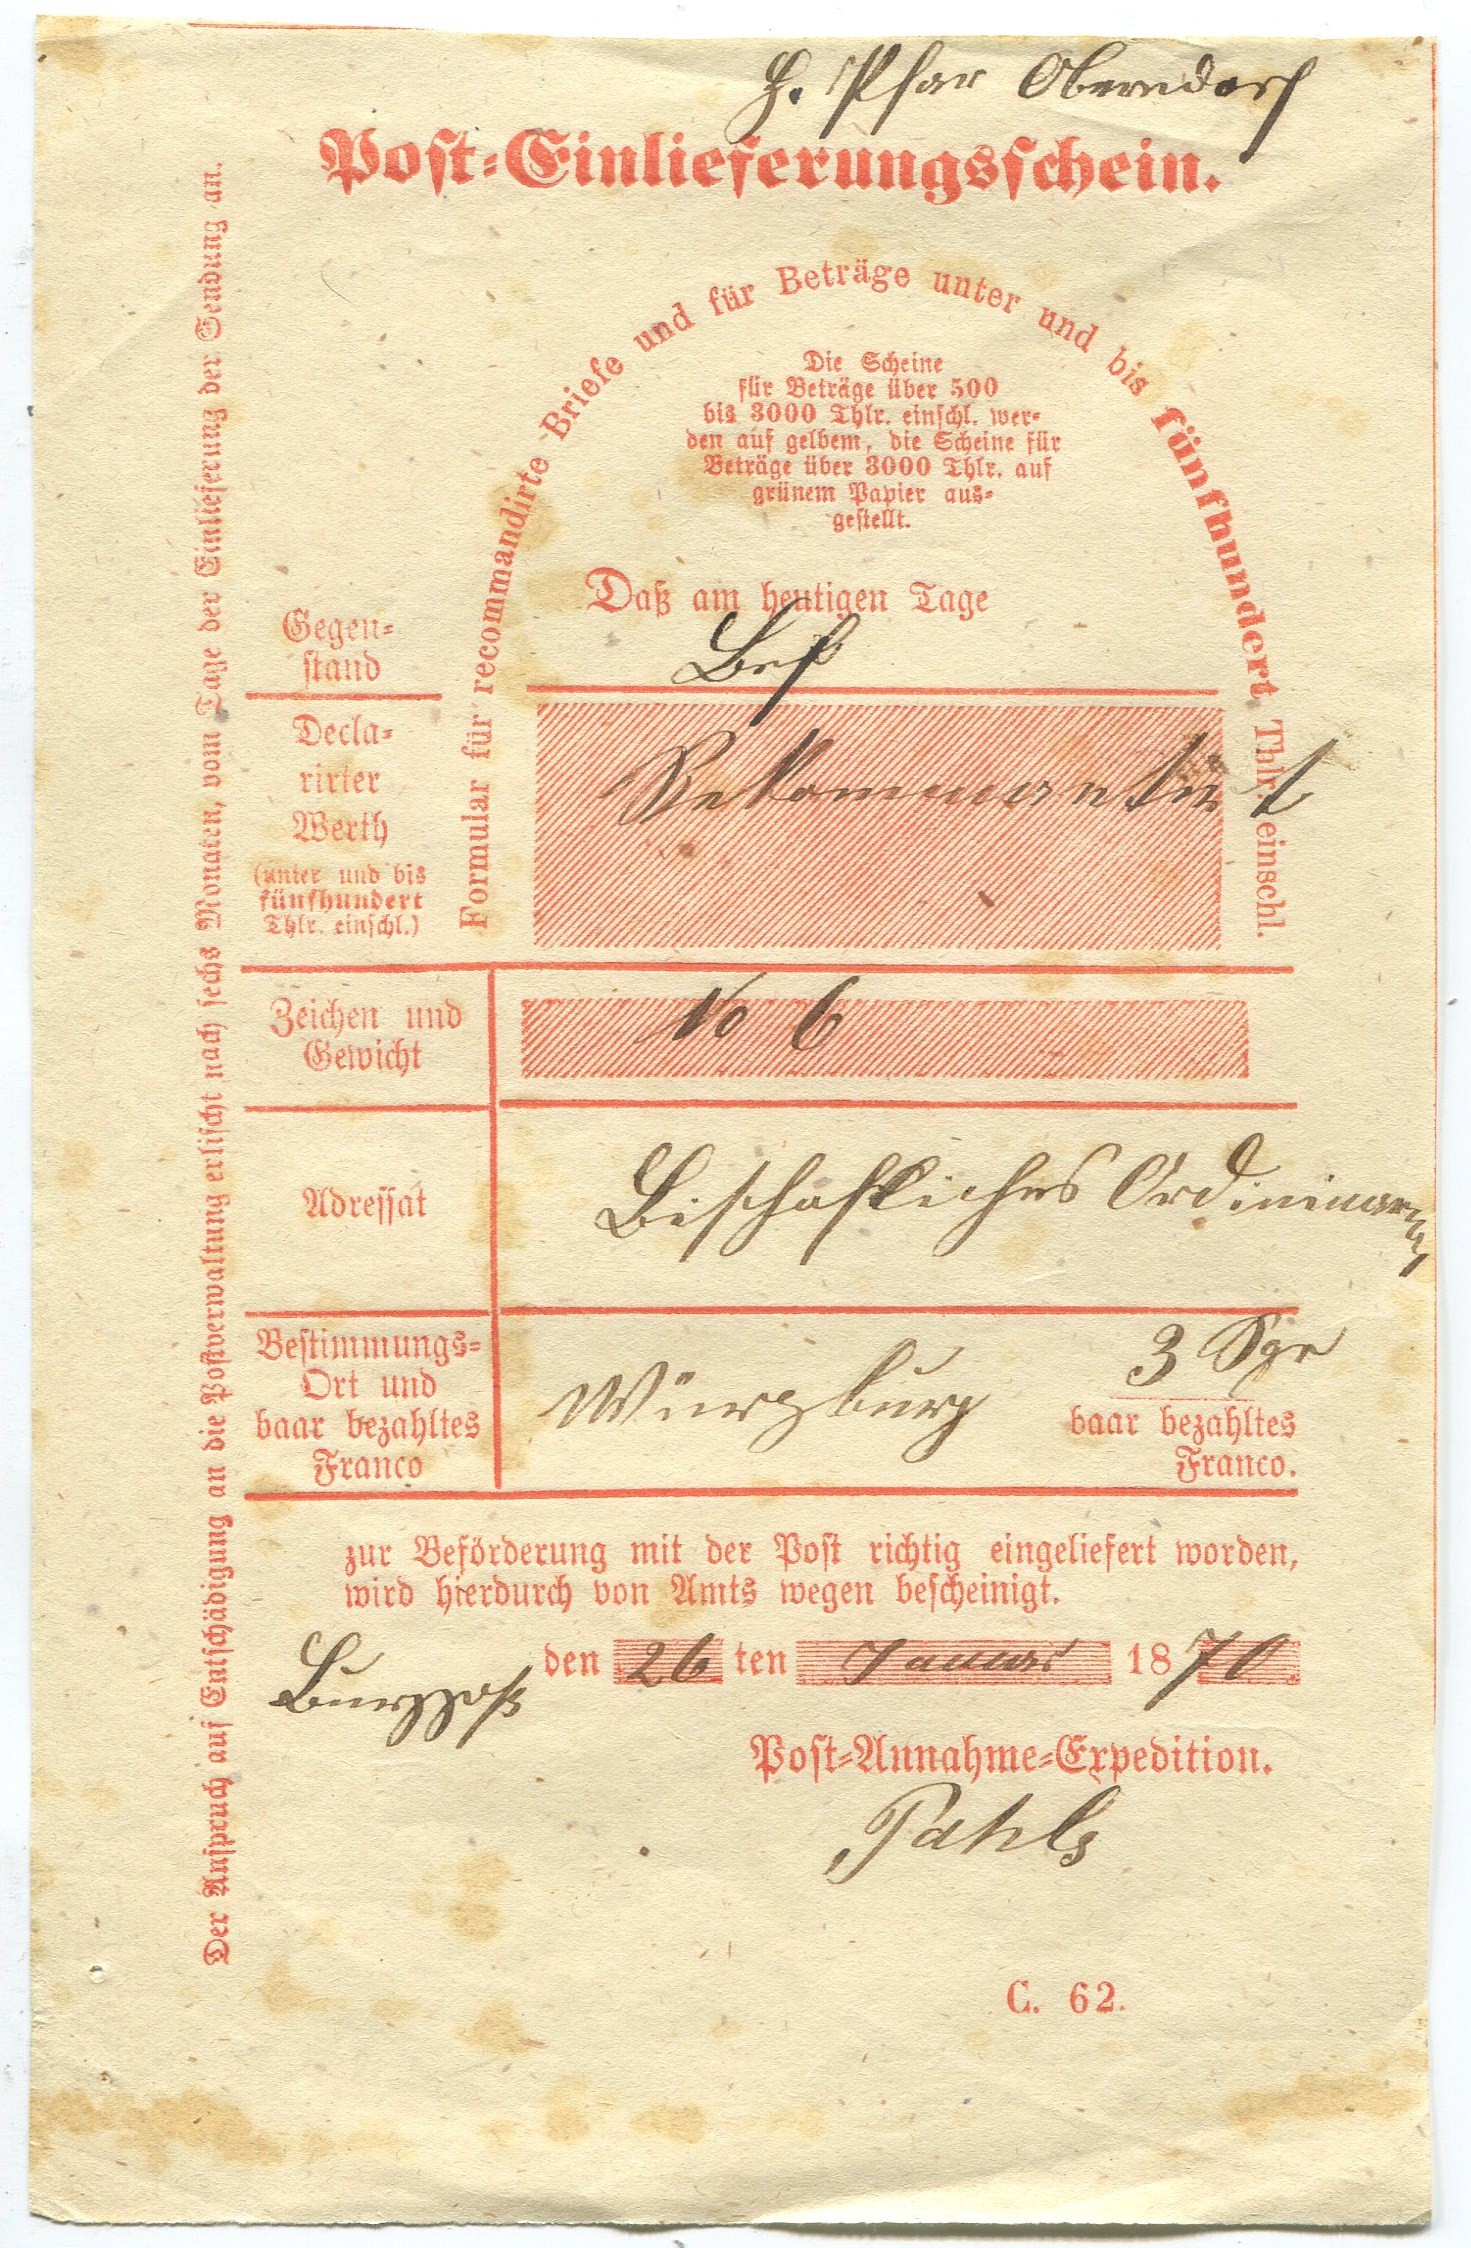 H. Pfar Oberndorf
Post-Einlieferungsschein.
Formular für recommandirte Briefe und für Beträge unter und bis fünfhundert Thlr. einschl.
Die Scheine
für Beträge über 500
bis 3000 Thlr. einschl. wer-
den auf gelbem, die Scheine für
Beträge über 3000 Thlr. auf
grünem Papier aus-
gestellt.
Daß am heutigen Tage
Gegen-
stand
Brf
Decla-
rirter
Werth
(unter und bis
fünfhundert
Thlr. einschl.)
Rekommantirt
Zeichen und
Gewicht
No 6
Adressat
Bischöfliches
Bestimmungs-
Ort und
baar bezahltes
Franco
Würzburg
3 Sgr
baar bezahltes
Franco.
zur Beförderung mit der Post richtig eingeliefert worden,
wird hierdurch von Amts wegen bescheinigt.
Burgjoß den 26 ten Januar 1870
Post-Annahme-Expedition.
Pahls
C. 62.
Der Anspruch auf Entschädigung an die Postverwaltung erlischt nach sechs Monaten, vom Tage der Einlieferung der Sendung an.